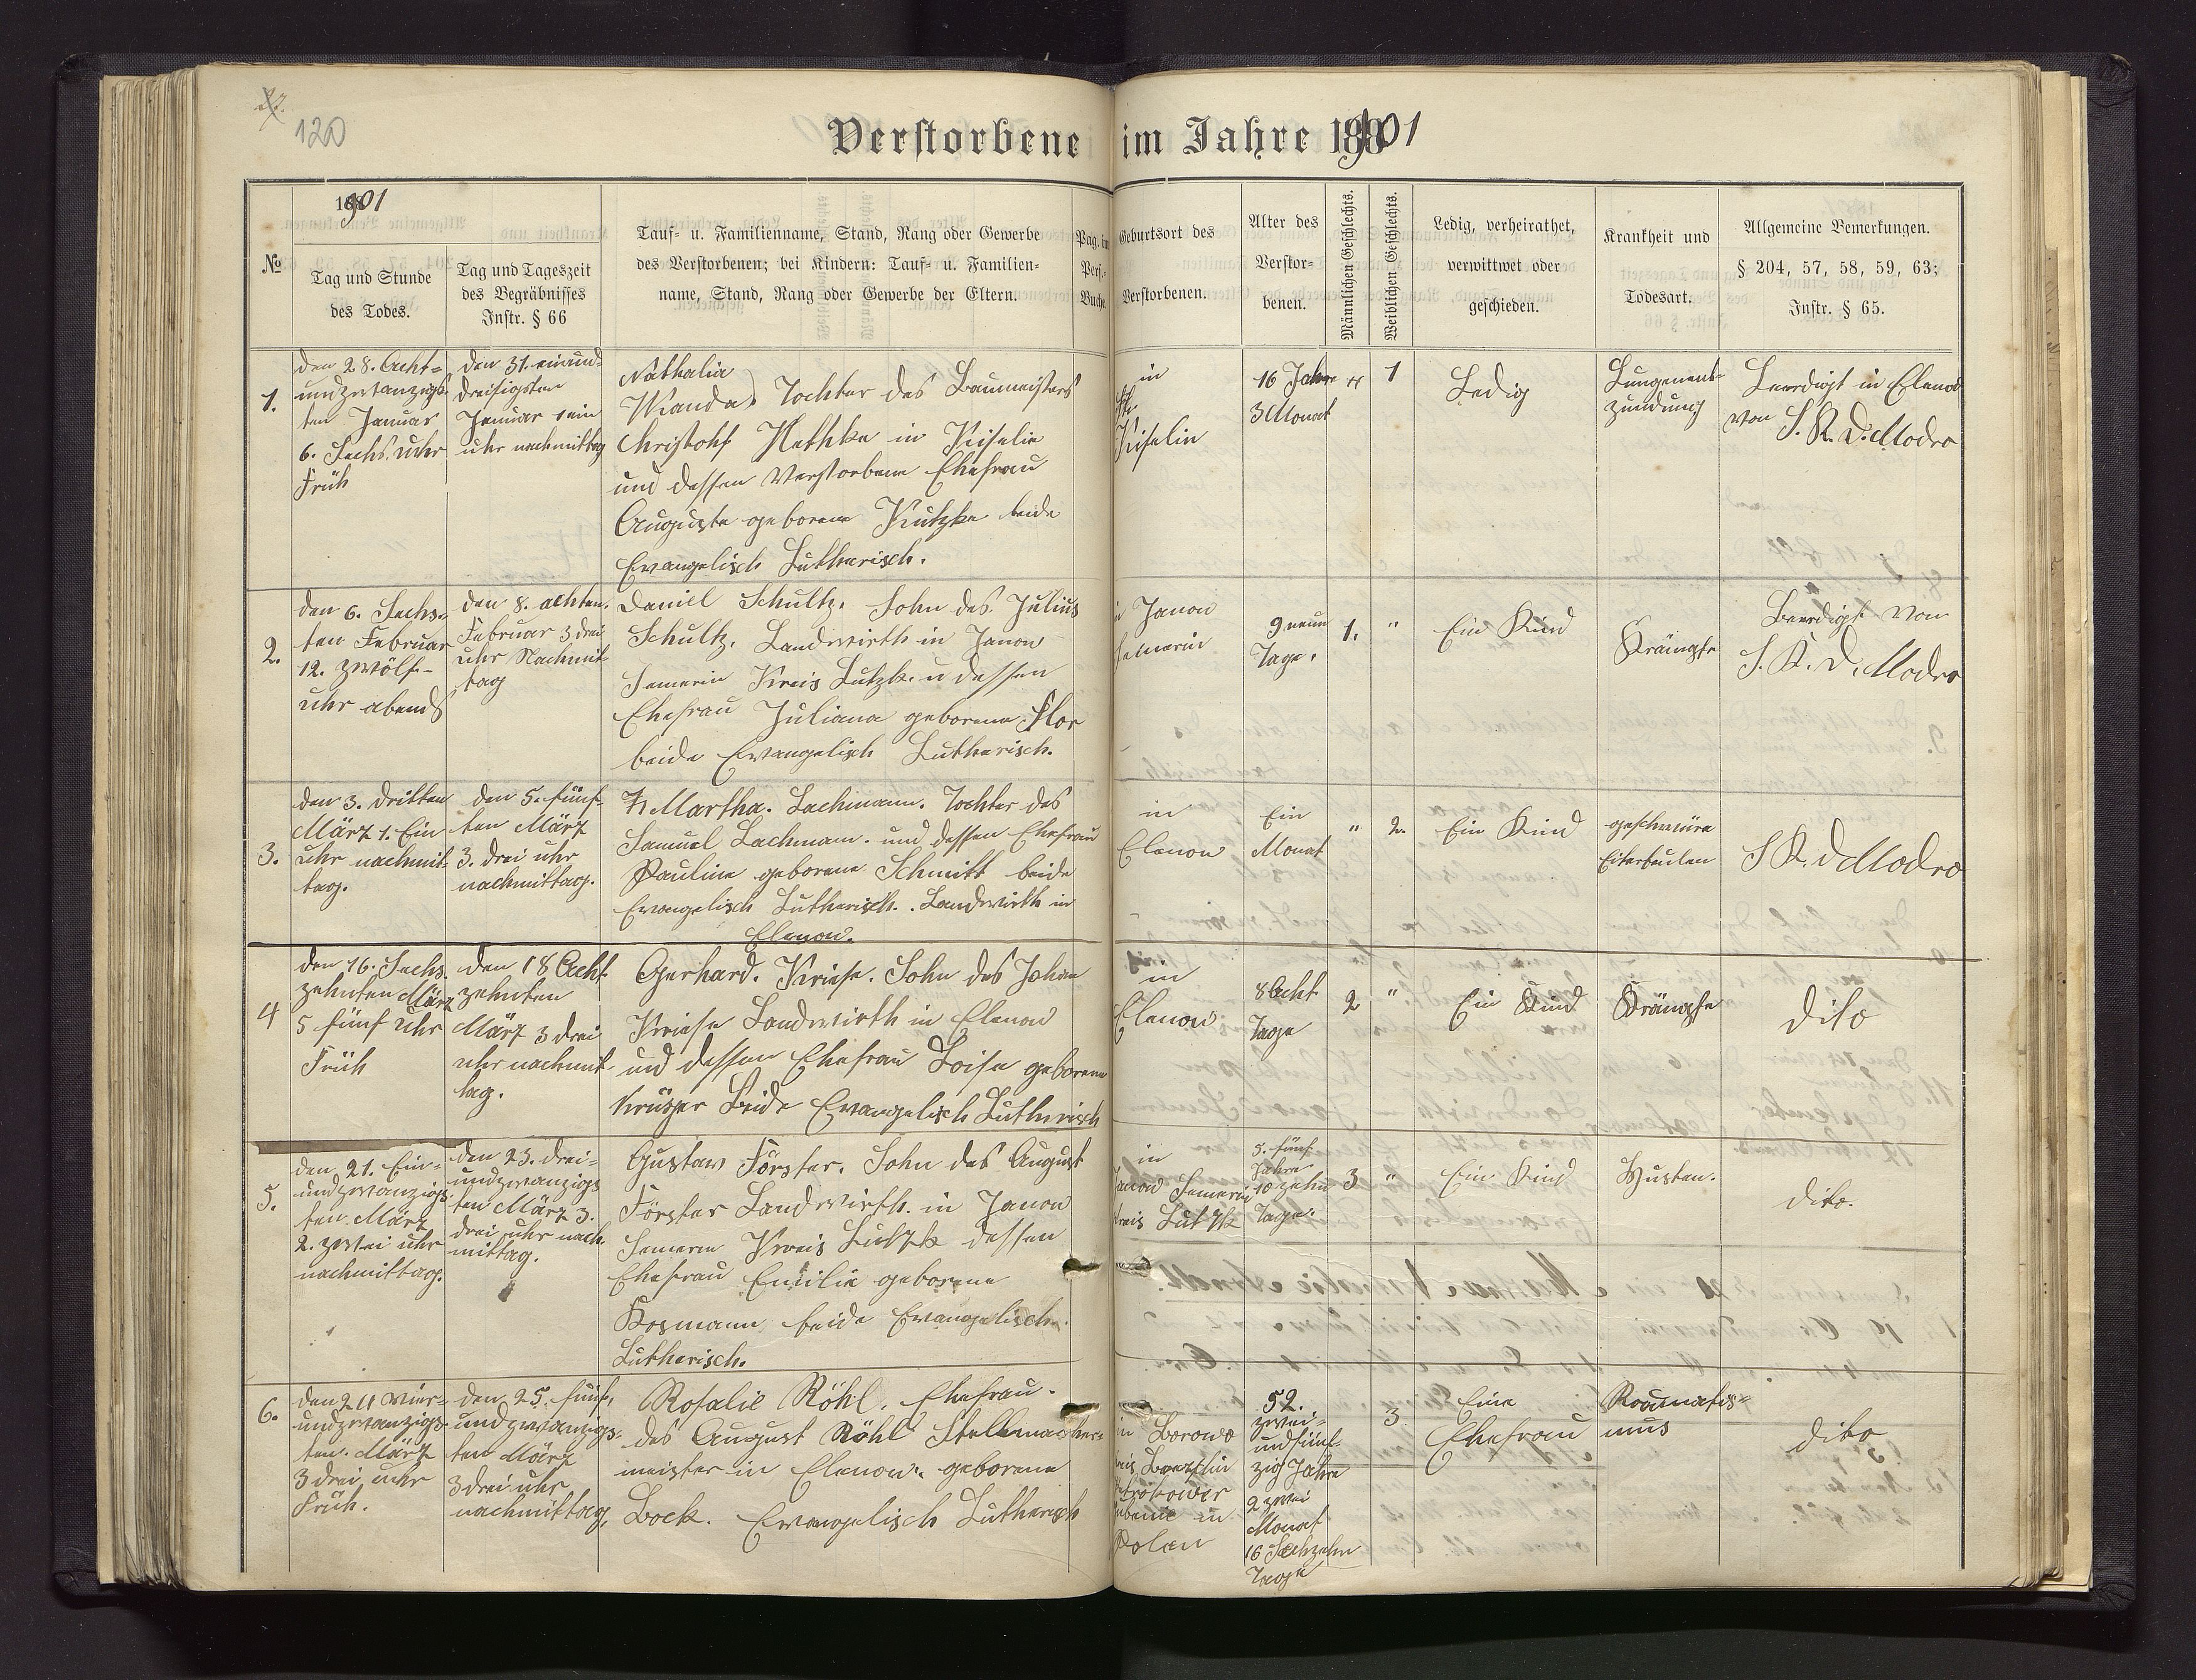 120
Verstorbene im Jahre 1901
1901
№
Tag und Stunde
des Todes.
Tag und Tageszeit
des Begräbnisses
Instr. § 66
Tauf- u. Familienname, Stand, Rang oder Gewerbe
des Verstorbenen; bei Kindern: Tauf- u. Familien-
name, Stand, Rang oder Gewerbe der Eltern.
Pag. im
Pers.-
Buche.
Geburtsort des
Verstorbenen.
Alter des
Verstor-
benen.
Männlichen Geschlechts.
Weiblichen Geschlechts.
Ledig, verheirathet,
verwittwet oder
geschieden.
Krankheit und
Todesart.
Allgemeine Bemerkungen.
§ 204, 57, 58, 59, 63;
Instr. § 65.
1.
den 28. Acht-
undzwanzigs-
ten Januar
6. Sechs. uhr
Früh
den 31. einund-
dreisigsten
Januar 1 ein
uhr nachmittag
Nathalia
Wanda. Tochter des Baumeisters
Christohf Hethke in Kiselin
und dessen Verstorbene Ehefrau
Auguste geborene Kutzke beide
Evangelisch Lutherisch.
in
Kiselin
16 Jahre
3 Monat
"
1
Ledig
Lungenent-
zündung
Beerdigt in Elenow
von S. K. D. Modro
2.
den 6. Sechs-
ten Februar
12. zwölf-
uhr abends
den 8. achten.
Februar 3 drei
uhr Nachmit
tag
Daniel Schultz. Sohn des Julius
Schultz. Landwirth in Janow
Semerin Kreis Lutzk. u dessen
Ehefrau Juliana geborene Flor
beide Evangelisch Lutherisch.
in Janow
Semerin
9 neun
Tage.
1.
"
Ein Kind
Krämpfe
Beerdigt von
S. K. D. Modro
3.
den 3. dritten
März 1. Ein
uhr nachmit-
tag.
den 5. fünf-
ten März
3. drei uhr
nachmittag.
Martha. Lachmann. Tochter des
Samuel Lachmann. und dessen Ehefrau
Pauline geborene Schmitt beide
Evangelisch Lutherisch. Landwirth in
Elenow.
in
Elenow
Ein
Monat
"
2.
Ein Kind
geschwüre
Eiterbeulen
S K. D Modro
4
den 16. Sechs.
zehnten März
5 fünf uhr
Früh
den 18 Acht
zehnten
März 3 drei
uhr nachmit
tag.
Gerhard. Kriese. Sohn des Johan
Kriese Landwirth in Elenow
und dessen Ehefrau Loise geborene
Krüger Beide Evangelisch Lutherisch
in
Elenow
8 Acht
Tage
2
"
Ein Kind
Krämpfe
dito
5.
den 21. Ein-
undzwanzigs-
ten. März
2. zwei uhr
nachmittag.
den 23. drei-
undzwanzigs
ten März 3.
drei uhr nach.
mittag.
Gustaw Förster. Sohn des August
Förster Landwirth. in Janow
Semerin Kreis Lutzk dessen
Ehefrau Emilie geborene
Kosmann beide Evangelisch.
Lutherisch.
in
Janow Semerin
Kreis Lutzk
5. fünf
Jahre
10 zehn
Tage.
3
"
Ein Kind
Husten.
dito.
6.
den 24 vier-
undzwanzigs-
ten. März
3 drei uhr
Früh.
den 25. fünf,
undzwanzigs-
ten März
3 drei uhr
nachmittag,
Rosalie Röhl. Ehefrau.
des August Röhl Stellmacher-
meister in Elenow. geborene
Bock. Evangelisch Lutherisch
in Borowo
Polen
52.
zwei-
undfünf-
zig Jahre
2 zwei
Monat
16 Sechzehn
Tage
3
Eine
Ehefrau
Roumatis-
mus
dito